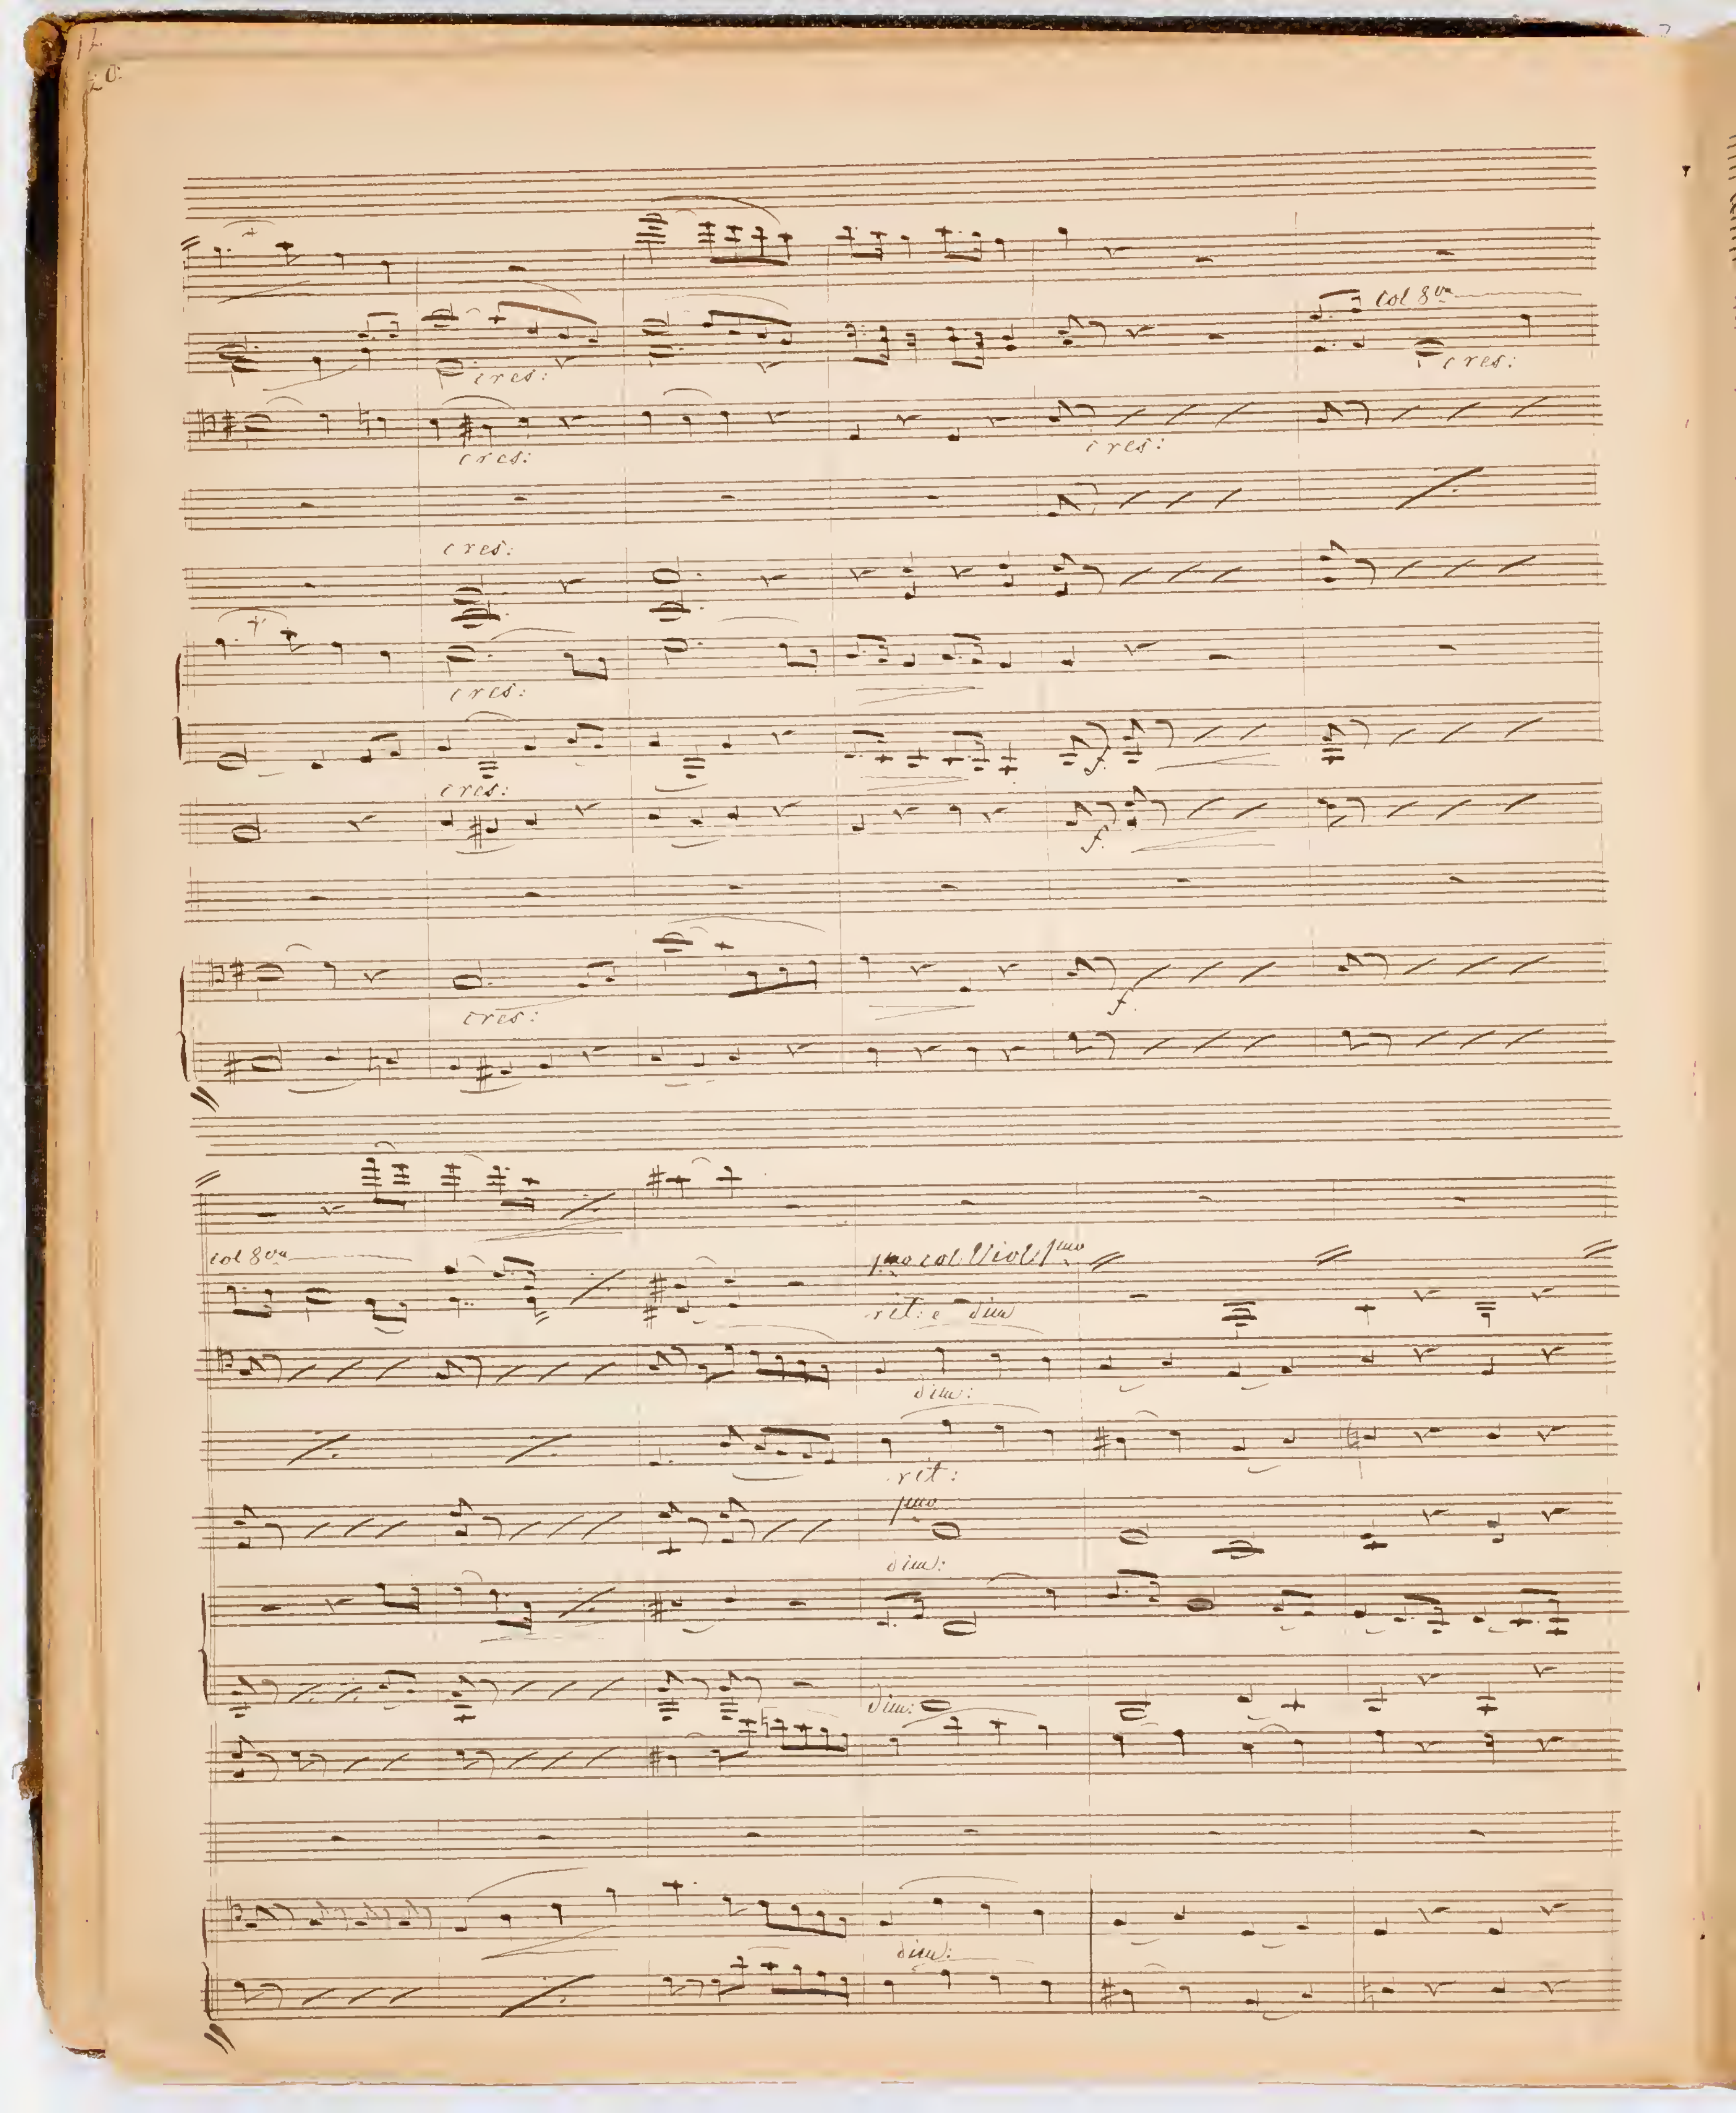 20.
col 8va
cres:
cres:
cres:
cres:
cres:
cres:
cres:
f.
f.
cres:
f.
col 8va
1mo col Viol 1mo
rit: e dim
dim:
rit:
1mo
dim:
dim:
dim: